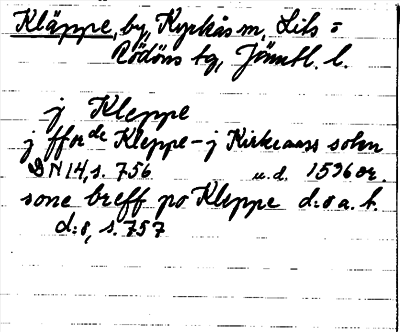 Kläppe, by, Kyrkås m, Lits o
Rödöns tg, Jämtl. l.
j Kleppe
j ffor de Kleppe - j Kirkeaass sokn
DN 14, s. 756 u.d. 1536 or.
sone breff po Kleppe d:o a. t.
d:o, s. 757